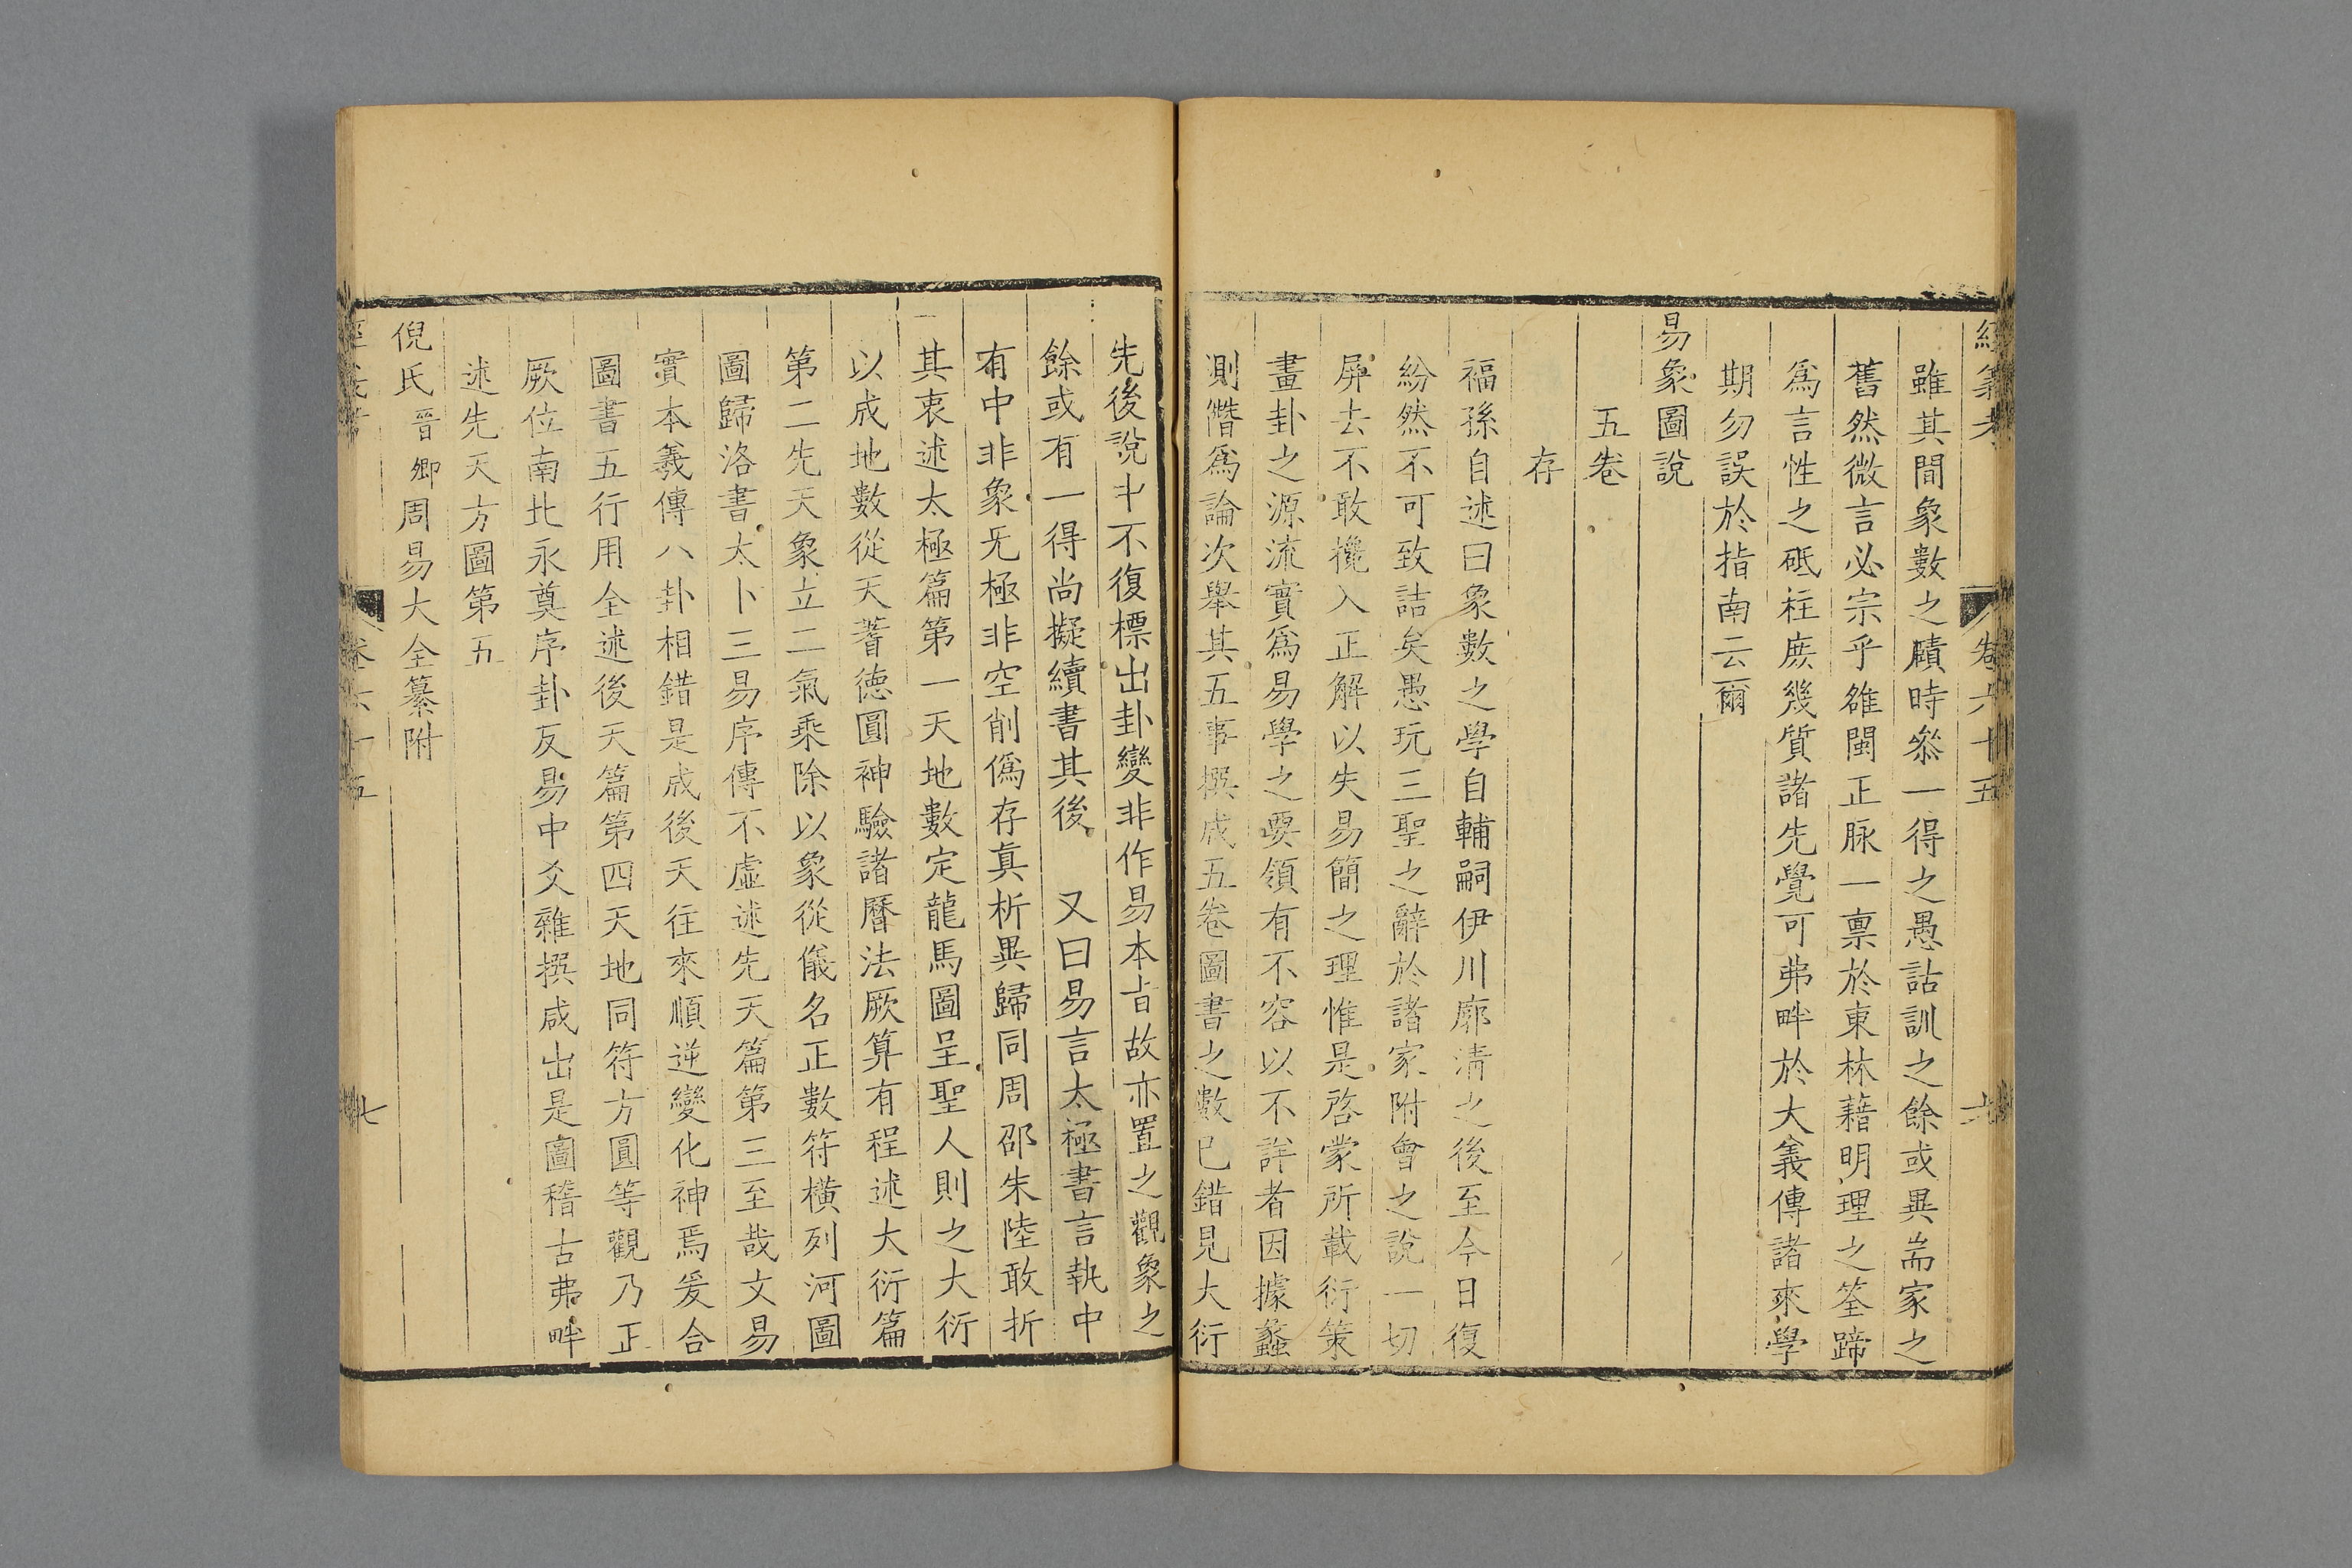 經義考 卷六十五 六
雖其間象數之賾時參一得之愚詁訓之餘或異耑家之
舊然微言必宗乎雒閩正脉一禀於東林藉明理之筌蹄
爲言性之砥柱庶幾質諸先覺可弗畔於大義傳諸來學
期勿誤於指南云爾
易象圖說
五卷
存
福孫自述曰象數之學自輔嗣伊川廓清之後至今日復
紛然不可致詰矣愚玩三聖之辭於諸家附會之說一切
屏去不敢攙入正解以失易簡之理惟是啓蒙所載衍策
畫卦之源流實爲易學之要領有不容以不詳者因據蠡
測僭爲論次舉其五事撰成五卷圖書之數已錯見大衍
先後說中不復標出卦變非作易本旨故亦置之觀象之
餘或有一得尚擬續書其後 又曰易言太極書言執中
有中非象无極非空削僞存真析異歸同周邵朱陸敢折
其衷述太極篇第一天地數定龍馬圖呈聖人則之大衍
以成地數從天蓍德圓神驗諸曆法厥算有程述大衍篇
第二先天象立二氣乘除以象從儀名正數符橫列河圖
圖歸洛書太卜三易序傳不虛述先天篇第三至哉文易
實本羲傳八卦相錯是成後天往來順逆變化神焉爰合
圖書五行用全述後天篇第四天地同符方圓等觀乃正
厥位南北永奠序卦反易中爻雜撰咸出是圖稽古弗畔
述先天方圖第五
倪氏晉卿周易大全纂附
經義考 卷六十五 七